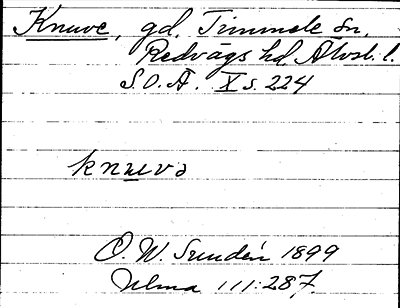 Knuve, gd. Timmele sn,
Redvägs hd, Älvsb. l.
S.O.Ä. X s. 224
knuvə
O. W. Sundén 1899
Ulma 111:287.